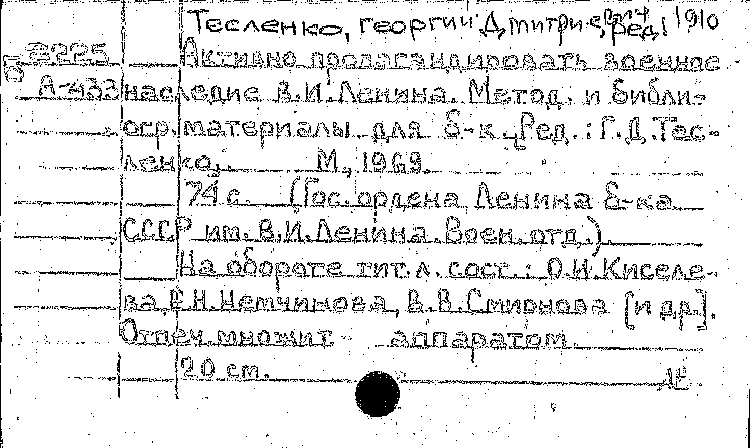 Тесленко, Георгий Дмитриевич, ред. 1910
Б 2225 Активно пропагандировать военное
А-433 наследие В.И.Ленина. Метод. и библи-
огр. материалы для б-к. Ред.: Г.Д.Тес-
ленко. М., 1969.
74 с. (Гос. ордена Ленина б-ка
СССР им. В.И.Ленина. Воен. отд.).
На обороте тит. л. сост.: О.И.Киселе-
ва, Е.Н.Немчинова, В.В.Смирнова [и др.].
Отпеч. множит. аппаратом.
20 см.